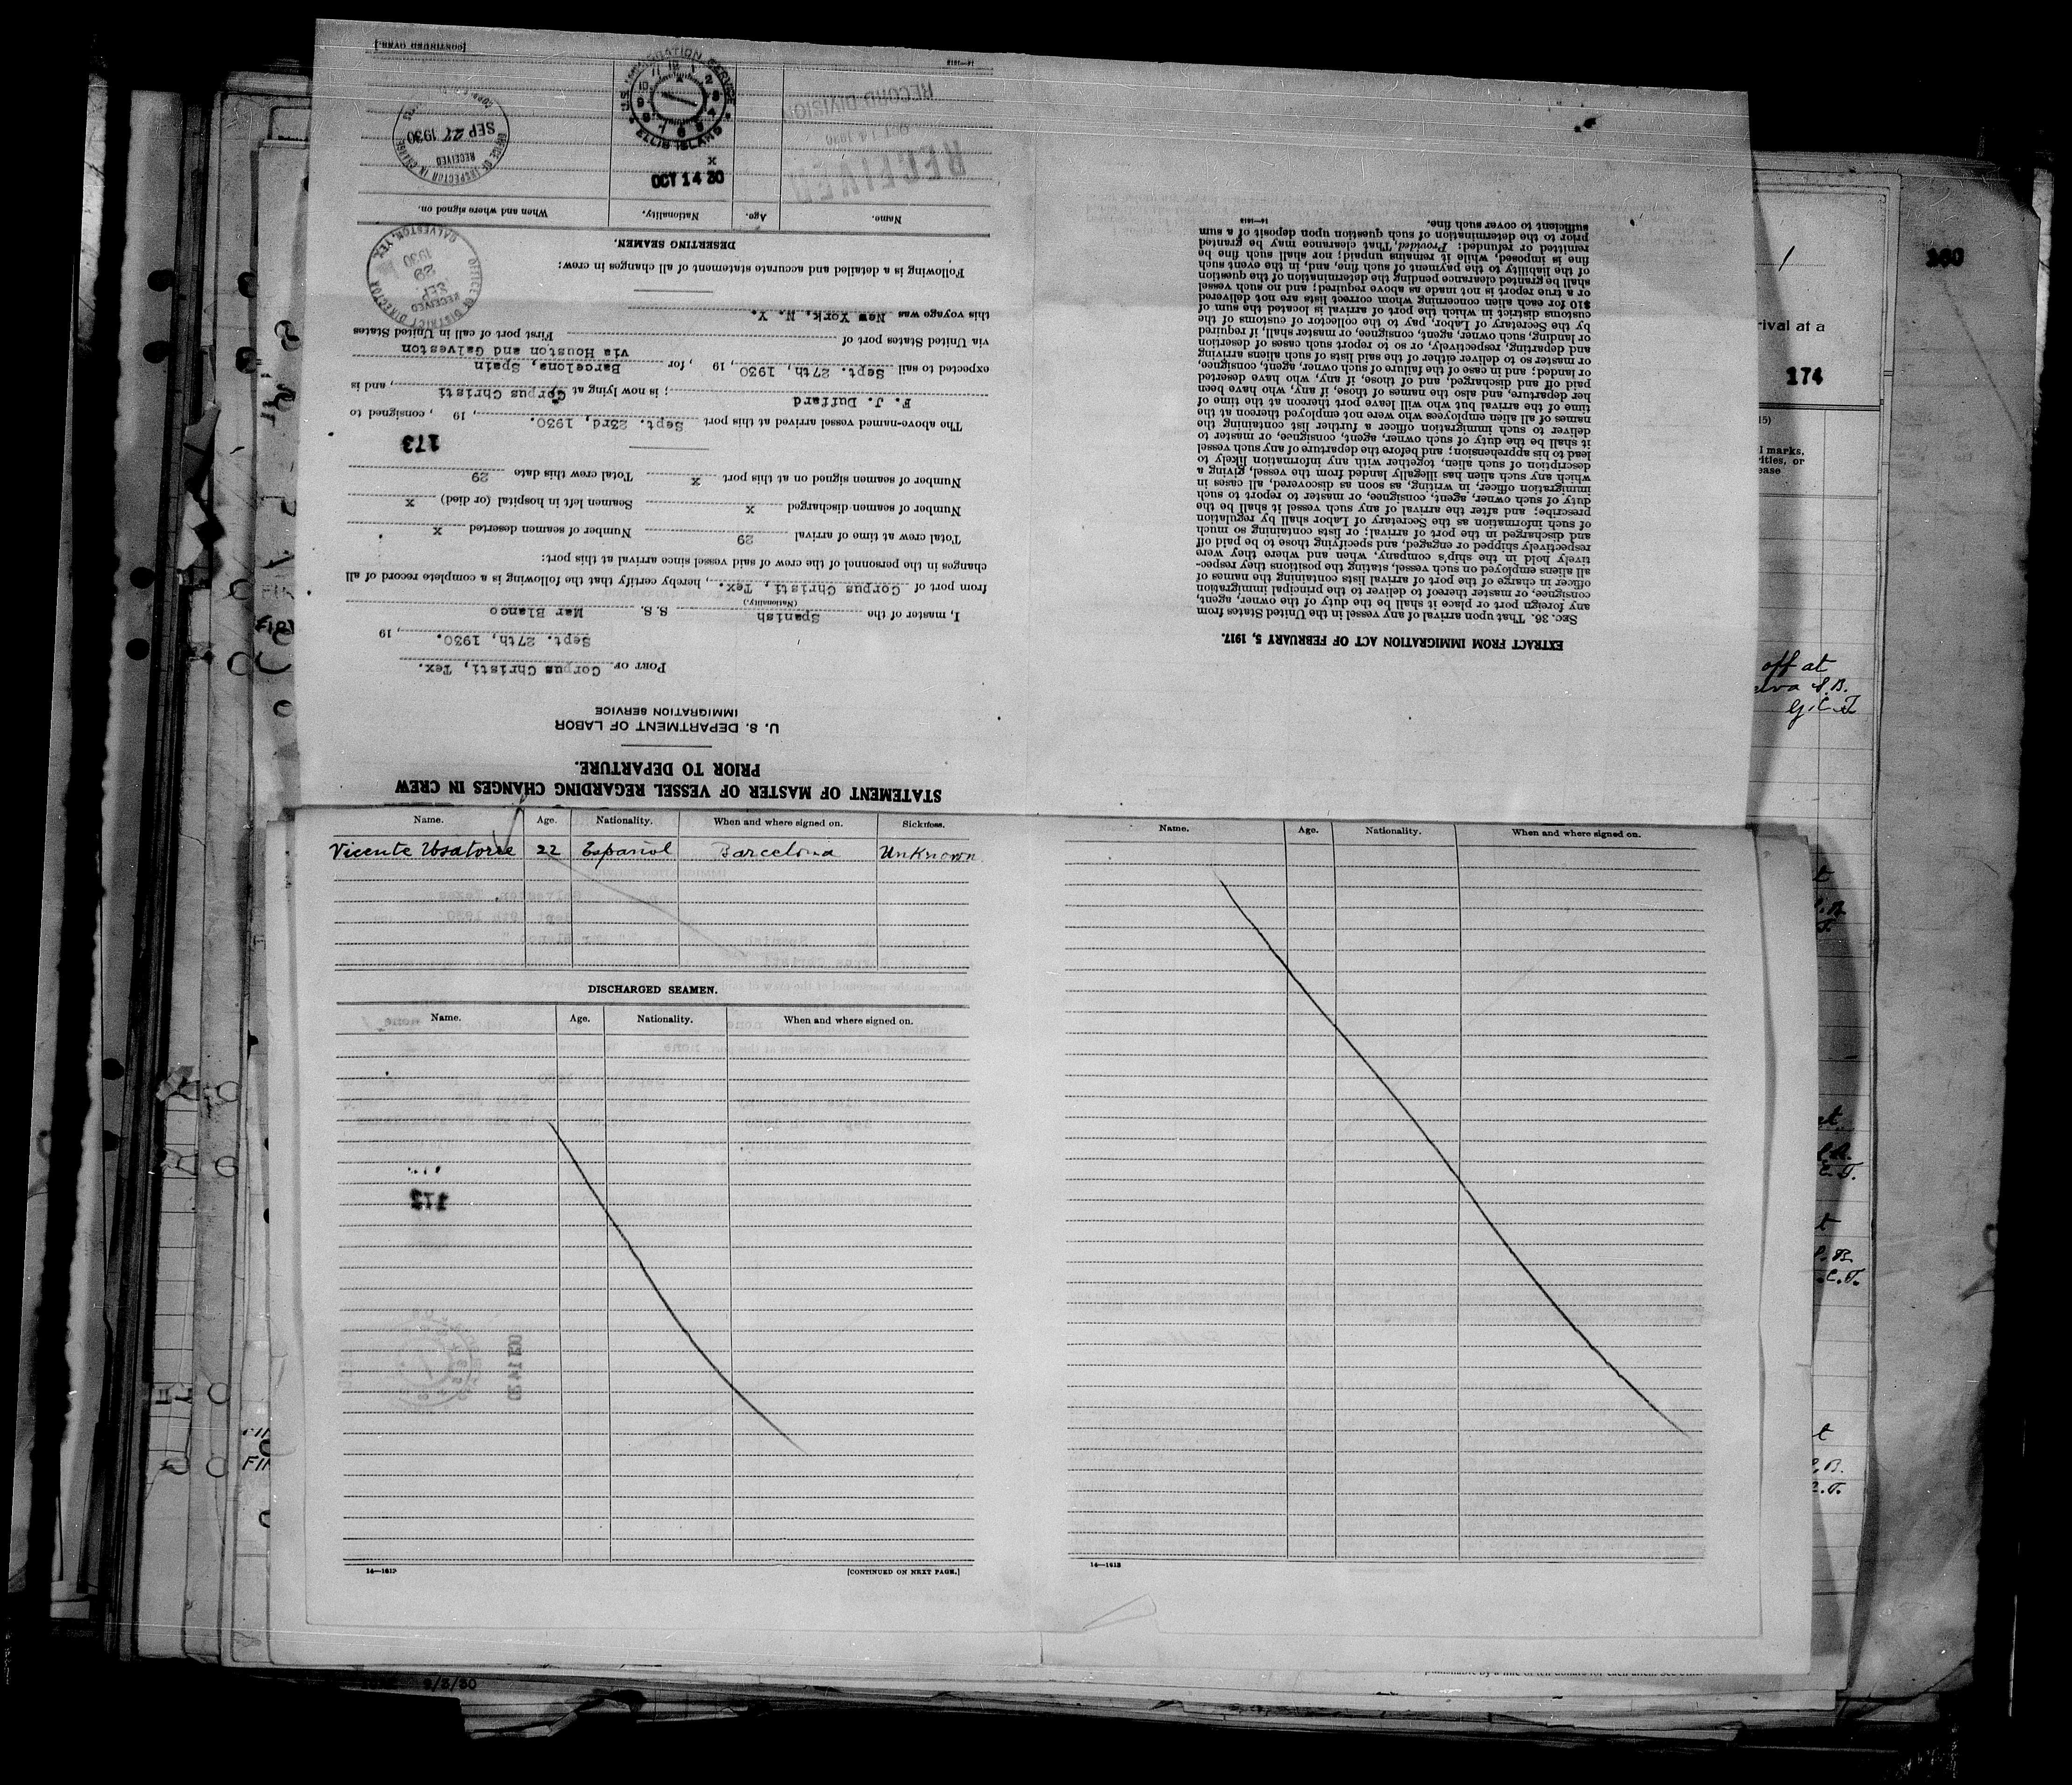 STATEMENT OF MASTER OF VESSEL REGARDING CHANGES IN CREW
PRIOR TO DEPARTURE.
U. S. DEPARTMENT OF LABOR
IMMIGRATION SERVICE
PORT OF Corpus Christi, Tex.
Sept. 27th, 1930. , 19
I, master of the Spanish S.S. Mar Blanco
(Nationality.)
from port of Corpus Christi, Tex., hereby certify that the following is a complete record of all
changes in the personnel of the crew of said vessel since arrival at this port:
Total crew at time of arrival 29 Number of seamen deserted x
Number of seamen discharged x Seamen left in hospital (or died) x
Number of seamen signed on at this port x Total crew this date 29
173
The above-named vessel arrived at this port Sept. 23rd, 1930. , 19 , consigned to
F. J. Duffard ; is now lying at Corpus Christi , and is
expected to sail Sept. 27th, 1930 , 19 , for Barcelona, Spain
via Houston and Galveston
via United States port of First port of call in United States
this voyage was New York, N. Y.
Following is a detailed and accurate statement of all changes in crew:
DESERTING SEAMEN.
Name. Age. Nationality. When and where signed on.
OFFICE OF DISTRICT DIRECTOR
RECEIVED
SEP 29 1930
GALVESTON, TEX.
RECEIVED
OCT 14 1930
RECORD DIVISION
OCT 14 30
x
U.S. IMMIGRATION SERVICE
ELLIS ISLAND
OFFICE OF INSPECTOR IN CHARGE
RECEIVED
SEP 27 1930
14—1613
[CONTINUED OVER.]
EXTRACT FROM IMMIGRATION ACT OF FEBRUARY 5, 1917.
SEC. 36. That upon arrival of any vessel in the United States from
any foreign port or place it shall be the duty of the owner, agent,
consignee, or master thereof to deliver to the principal immigration
officer in charge of the port of arrival lists containing the names of
all aliens employed on such vessel, stating the positions they respec-
tively hold in the ship's company, when and where they were
respectively shipped or engaged, and specifying those to be paid off
and discharged in the port of arrival; or lists containing so much
of such information as the Secretary of Labor shall by regulation
prescribe; and after the arrival of any such vessel it shall be the
duty of such owner, agent, consignee, or master to report to such
immigration officer, in writing, as soon as discovered, all cases in
which any such alien has illegally landed from the vessel, giving a
description of such alien, together with any information likely to
lead to his apprehension; and before the departure of any such vessel
it shall be the duty of such owner, agent, consignee, or master to
deliver to such immigration officer a further list containing the
names of all alien employees who were not employed thereon at the
time of the arrival but who will leave port thereon at the time of
her departure, and also the names of those, if any, who have been
paid off and discharged, and of those, if any, who have deserted
or landed; and in case of the failure of such owner, agent, consignee,
or master so to deliver either of the said lists of such aliens arriving
and departing, respectively, or so to report such cases of desertion
or landing, such owner, agent, consignee, or master shall, if required
by the Secretary of Labor, pay to the collector of customs of the
customs district in which the port of arrival is located the sum of
$10 for each alien concerning whom correct lists are not delivered
or a true report is not made as above required; and no such vessel
shall be granted clearance pending the determination of the question
of the liability to the payment of such fine, and, in the event such
fine is imposed, while it remains unpaid; nor shall such fine be
remitted or refunded: Provided, That clearance may be granted
prior to the determination of such question upon deposit of a sum
sufficient to cover such fine.
14—1613
Name. Age. Nationality. When and where signed on. Sickness.
Vicente Usatorre 22 Español Barcelona Unknown
DISCHARGED SEAMEN.
Name. Age. Nationality. When and where signed on.
14—1613 [CONTINUED ON NEXT PAGE.]
Name. Age. Nationality. When and where signed on.
14—1613
160
rival at a
174
marks,
ease
off at
S.B.
G.C.T